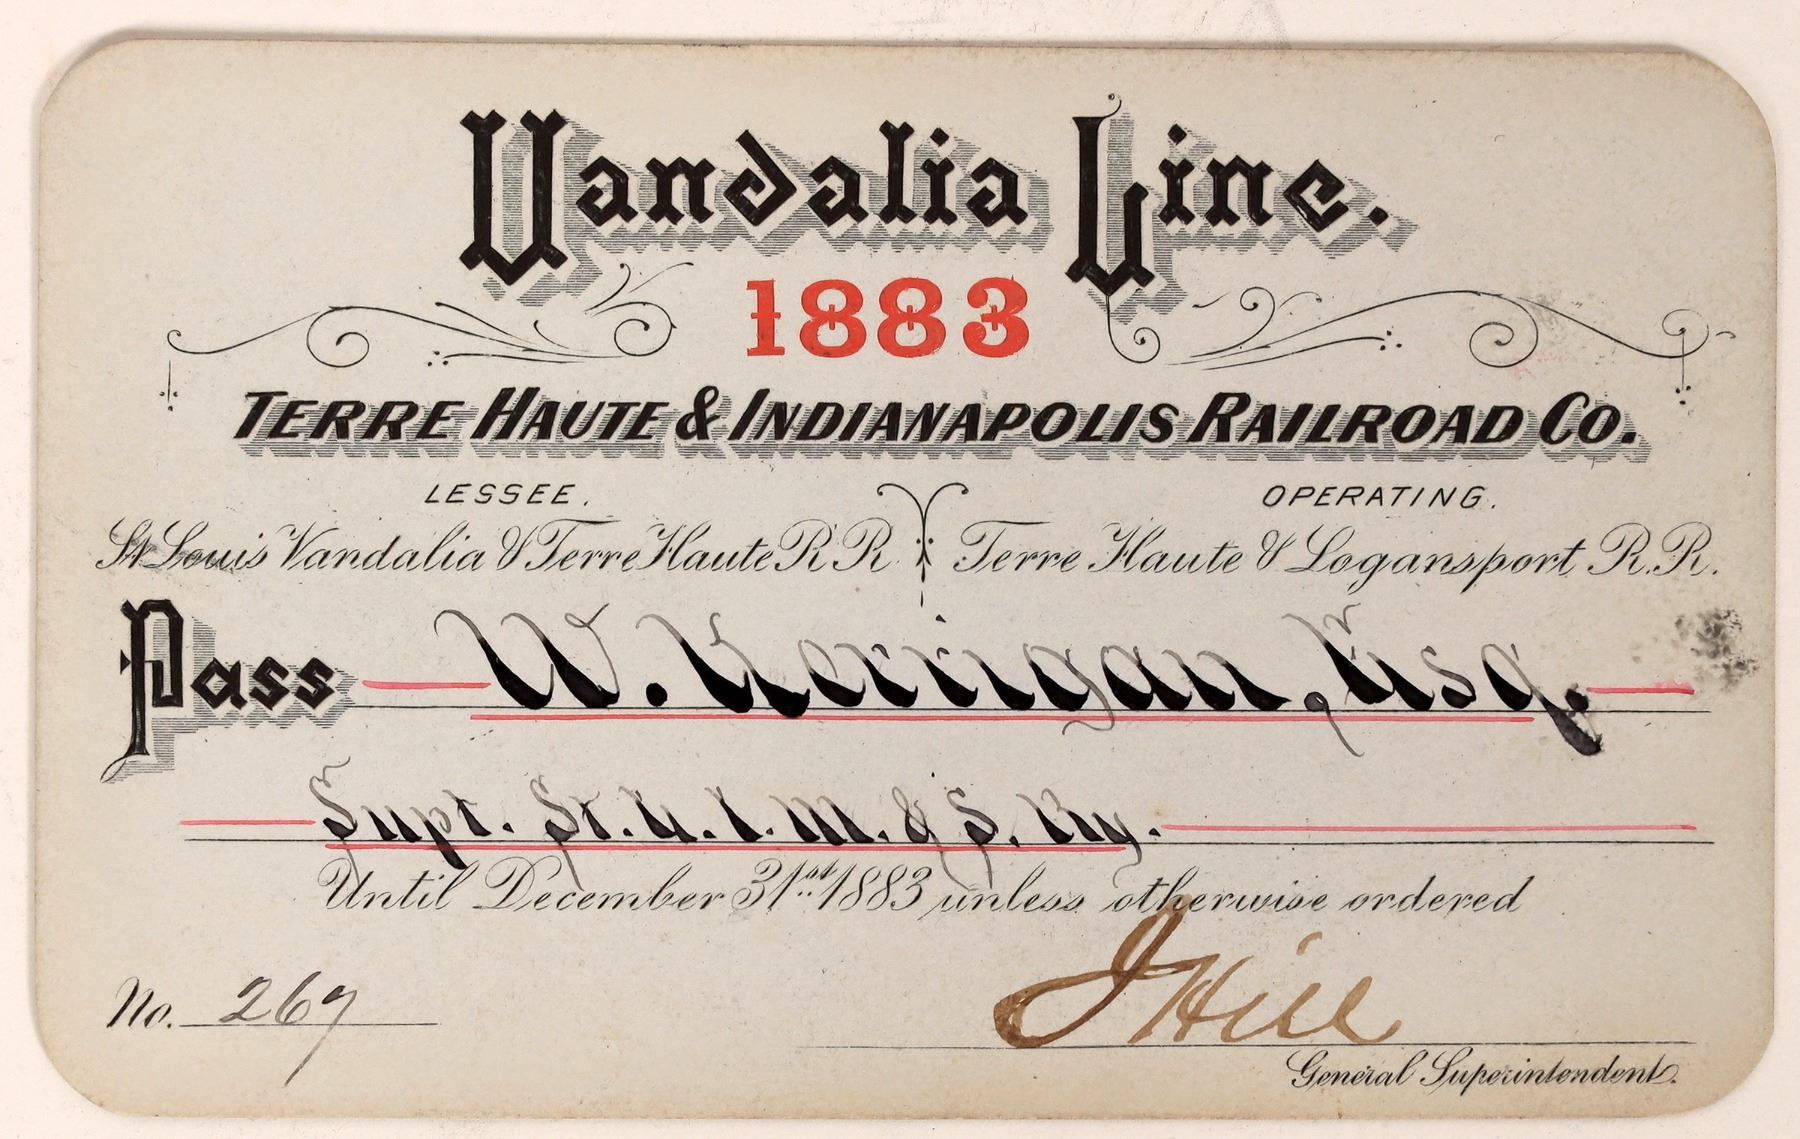 Vandalia Line.
1883
TERRE HAUTE & INDIANAPOLIS RAILROAD CO.
LESSEE. OPERATING.
St Louis Vandalia & Terre Haute R R Terre Haute & Logansport R. R.
Pass W. Kerrigan, Esq.
Supt. St. L. I. M. & S. Ry.
Until December 31st 1883 unless otherwise ordered
No. 267 J Hill
General Superintendent.